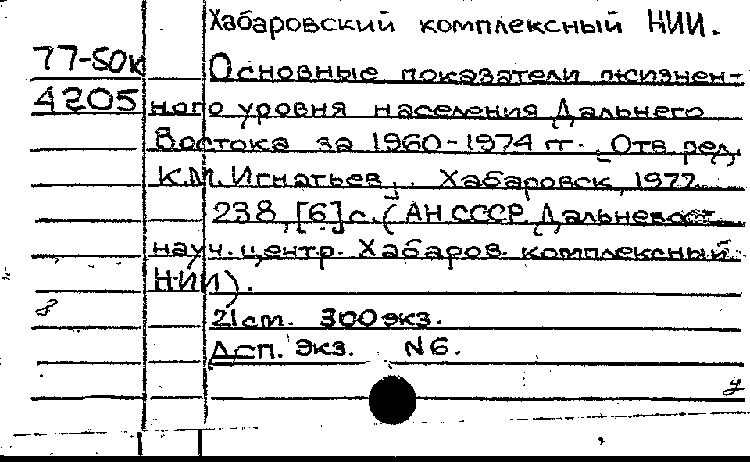 Хабаровский комплексный НИИ.
77-50к Основные показатели жизнен-
4205 ного уровня населения Дальнего
Востока за 1960-1974 гг. Отв. ред.
К.М. Игнатьев. Хабаровск, 1977.
238, [6] с. (АН СССР. Дальневост.
науч. центр. Хабаров. комплексный
НИИ).
21 см. 300 экз.
Дсп. Экз. N6.